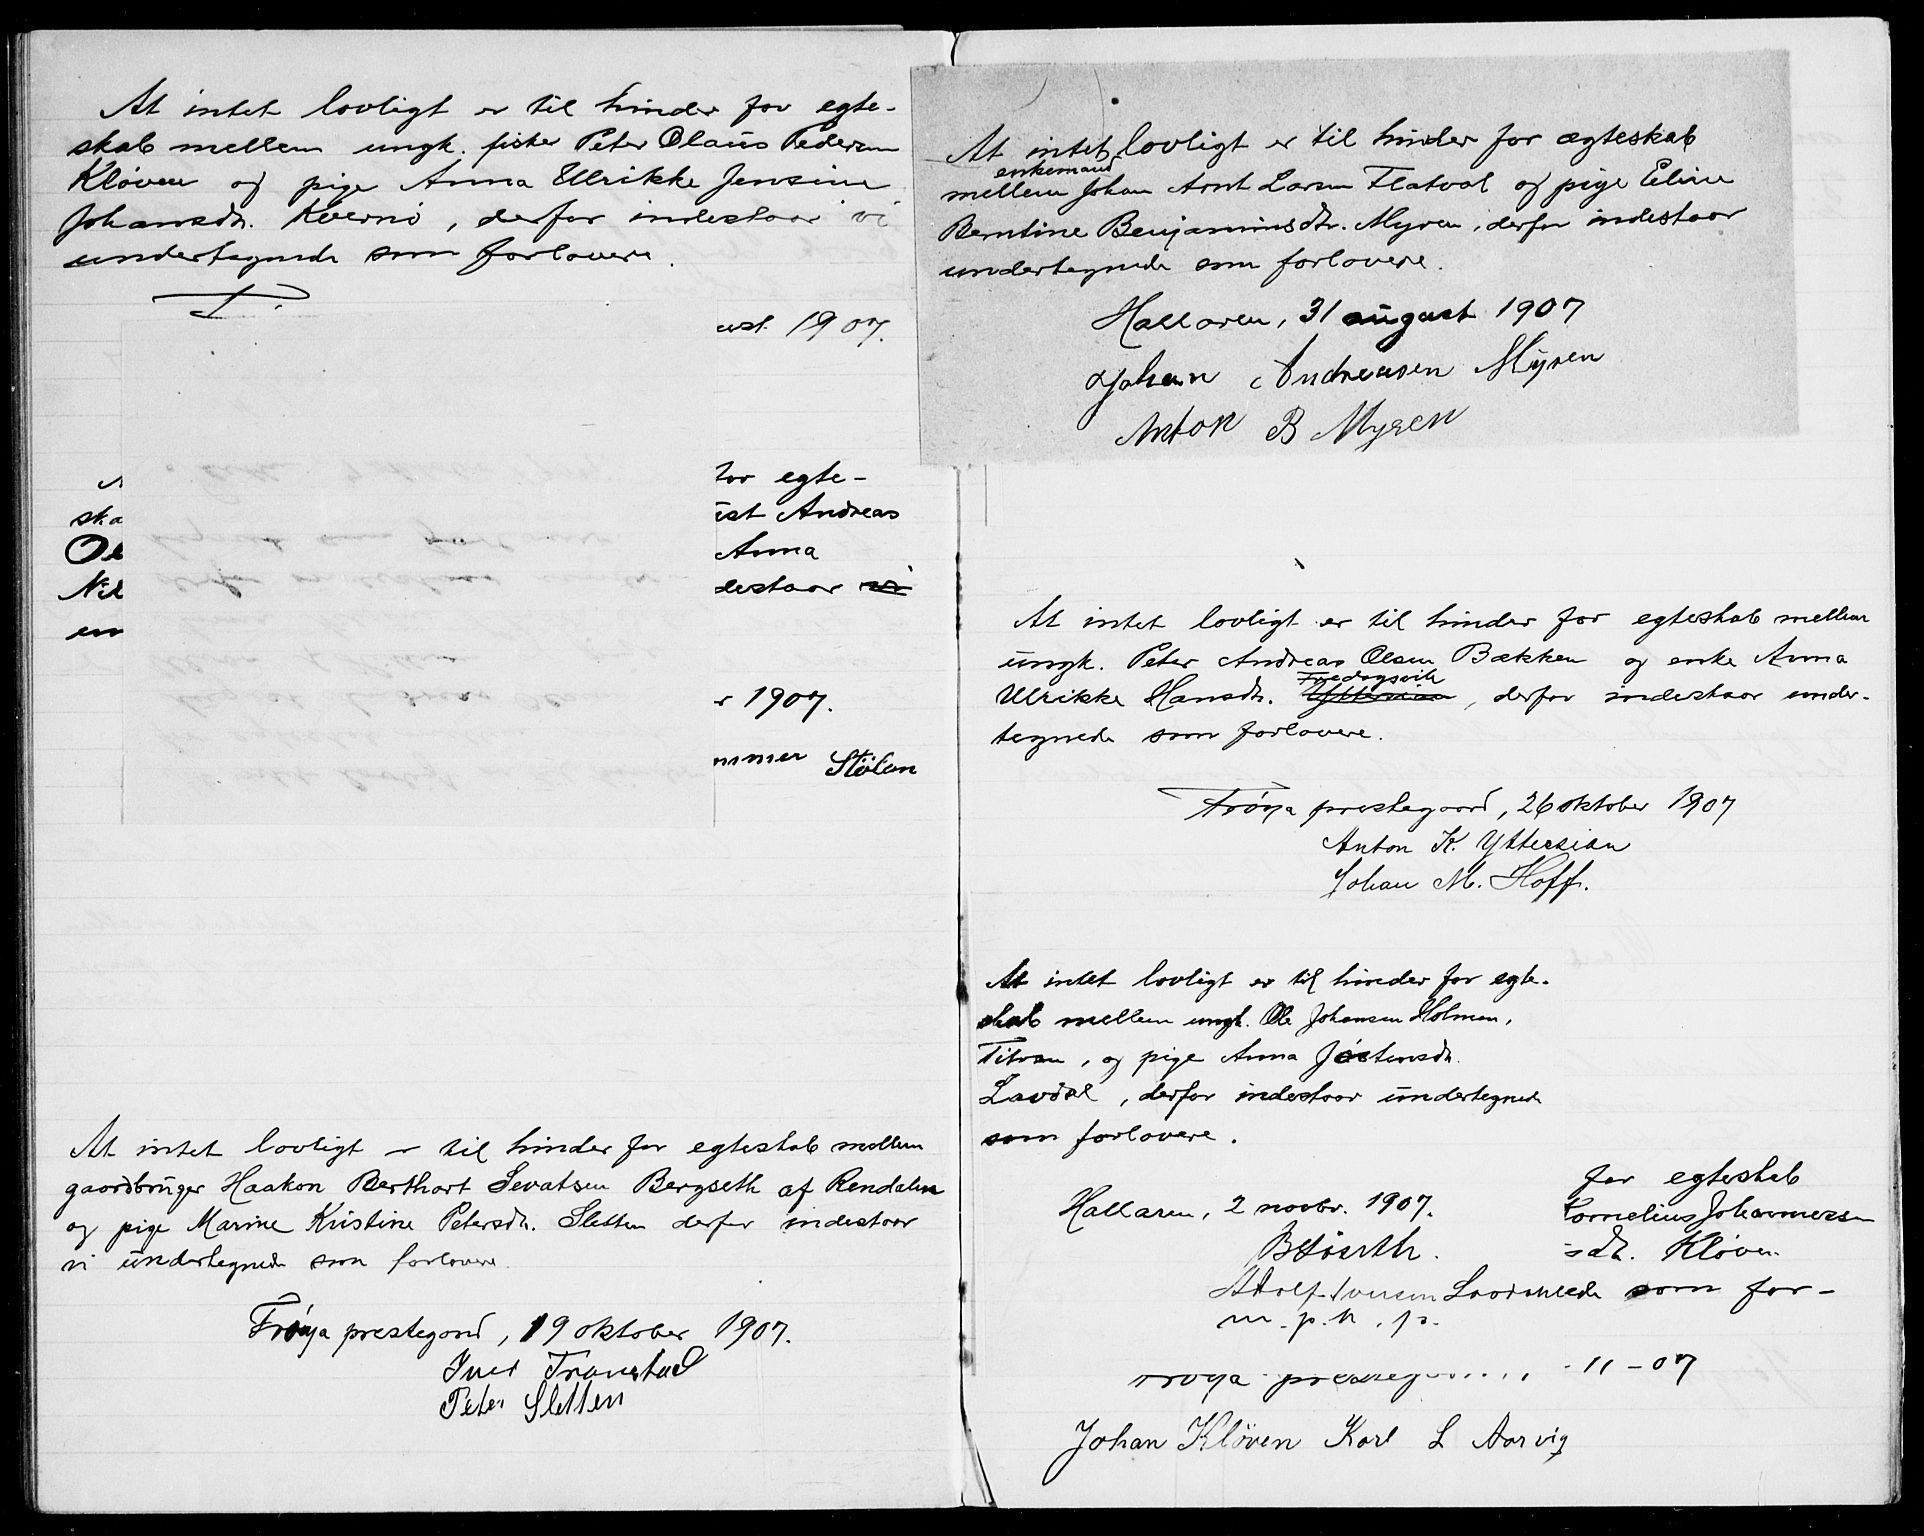 At intet lovligt er til hinder for egte-
skab mellem ungk. fisker Peter Olaus Pedersen
Kløven og pige Anna Ulrikke Jensine
Johansdtr. Kvernø, derfor indestaar vi
undertegnede som forlovere.
ust 1907.
for egte-
ska
ist Andreas
Ol
Anna
Nil
destaar vi
un
r 1907.
mmer Stølan
At intet lovligt er til hinder for egteskab mellem
gaardbruger Haakon Berthart Sevatsen Bergseth af Rendalen
og pige Marine Kristine Petersdtr. Sletten derfor indestaar
vi undertegnede som forlovere.
Frøya prestegard, 19 oktober 1907.
Iver Transtad
Peter Sletten
At intet lovligt er til hinder for ægteskab
enkemand
mellem Johan Arnt Larsen Flatval og pige Eline
Berntine Benjaminsdtr. Myren, derfor indestaar
undertegnede som forlovere.
Hallaren, 31 august 1907
Johan Andreasen Myren
Anton B Myren
At intet lovligt er til hinder for egteskab mellem
ungk. Peter Andreas Olsen Bækken og enke Anna
Fredagsvik
Ulrikke Hansdtr. Yttersian, derfor indestaar under-
tegnede som forlovere.
Frøya prestegaard, 26 oktober 1907
Anton K. Yttersian
Johan M. Hoff.
At intet lovligt er til hinder for egte-
skab mellem ungk. Ole Johansen Holmen,
Titran, og pige Anna Jostensdtr.
Lavdal, derfor indestaar undertegnede
som forlovere.
for egteskab
Hallaren, 2 novbr. 1907.
Cornelius Johannessen
sdtr. Kløven
Adolf Iversen
som for-
m. p. p.
Frøya 11-07
Johan Kløven Karl L Aarvig